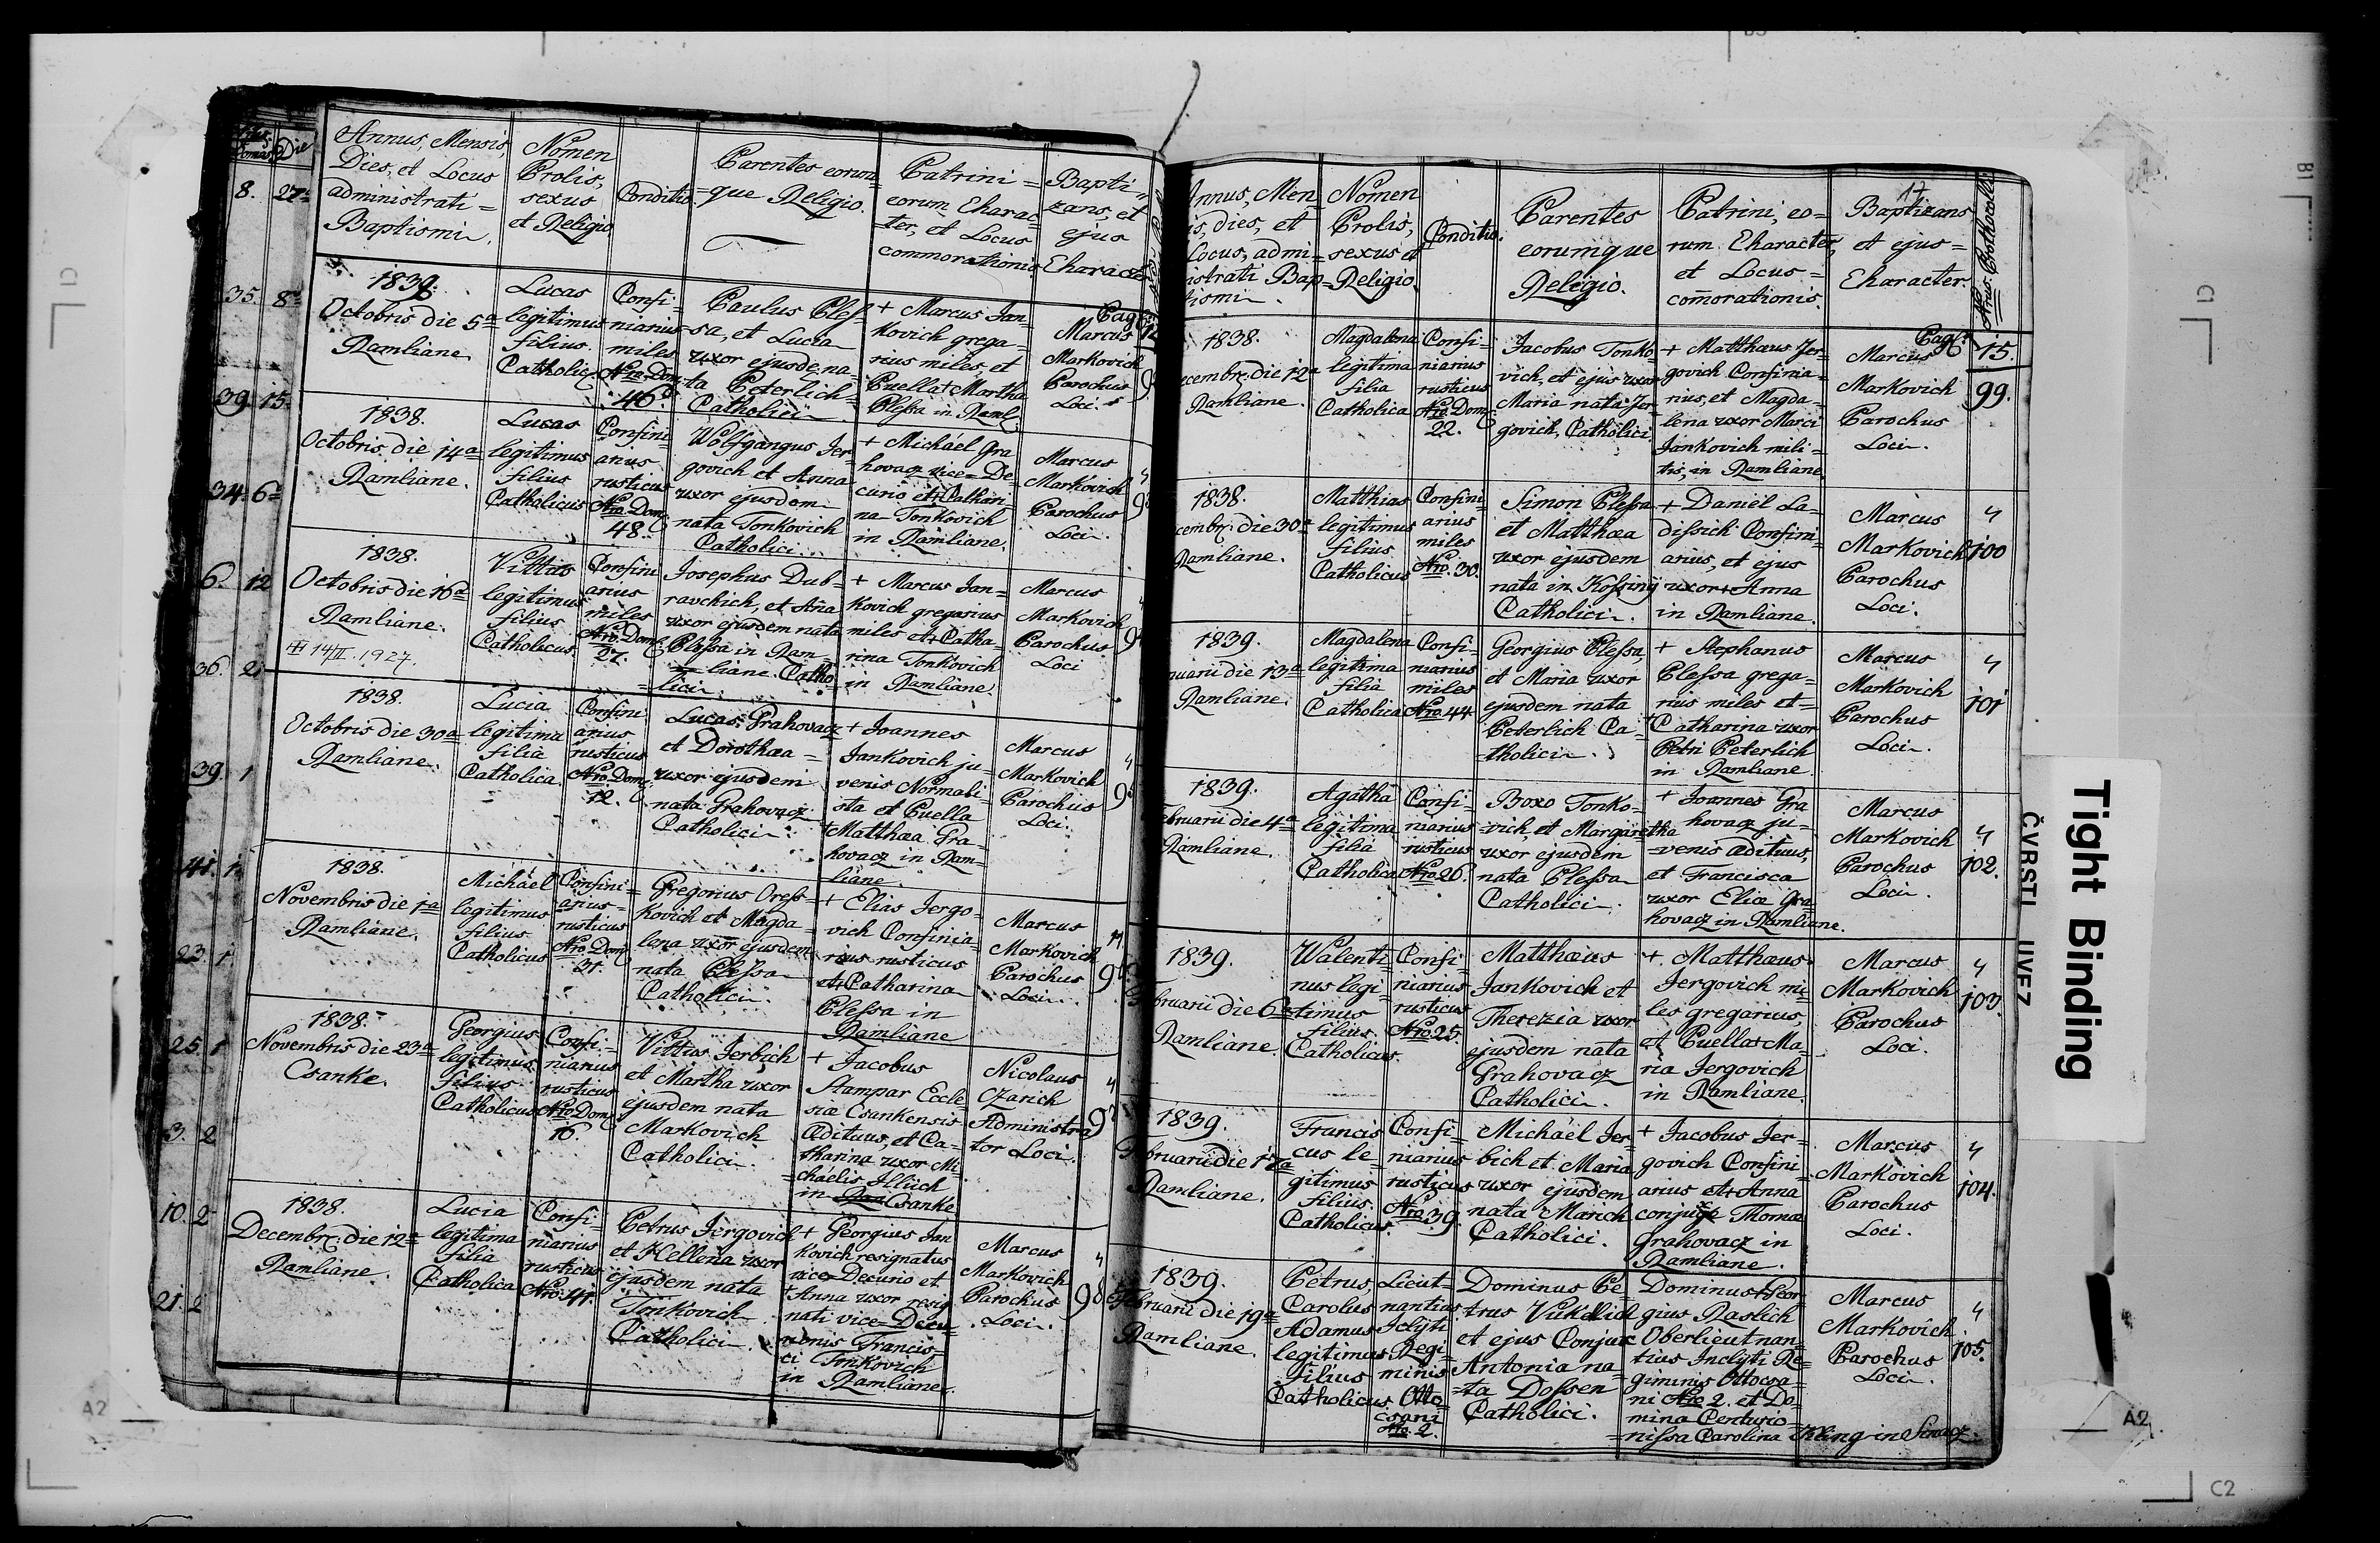 Die
8. 27
35. 8
39. 15.
34. 6
6. 12
36. 2
39. 1
41. 1
23. 1
25. 1
3. 2
10. 2
21. 2
Annus, Mensis,
Dies, et Locus
administrati=
Baptismi.
Nomen
Prolis,
sexus
et Religio
Conditio.
Parentes eorum=
=que Religio.
Patrini=
eorum Charac=
=ter, et Locus
commorationis
Bapti=
zans, et
ejus
Character
Pag:
1838.
Octobris die 5a
Ramliane
Lucas
legitimus
filius
Catholic
Confi=
niarius
miles
Nro Dom:
46.
Paulus Ples=
sa, et Lucia
uxor ejusde. na=
ta Peterlich=
Catholici
+ Marcus Jan=
kovich grega=
rius miles, et
Puella + Martha
Plessa in Raml:
Marcus
Markovich
Parochus
Loci.
1838.
Octobris, die 14a
Ramliane.
Lucas
legitimus
filius
Catholicus
Confini
arius
rusticus
Nro Dom:
48.
Wolfgangus Jer=
govich et Anna
uxor ejusdem
nata Tonkovich
Catholici.
+ Michael Gra
hovacz vice=De=
curio et + Cathari=
na Tonkovich
in Ramliane.
Marcus
Markovich
Parochus
Loci.
1838.
Octobris die 16a
Ramliane.
14/II. 1927.
Vittus
legitimus
filius
Catholicus
Confini
arius
miles
Nro Dom:
27.
Josephus Dub=
ravchich, et Ana
uxor ejusdem nata
Plessa in Ram=
liane. Catho=
=lici.
+ Marcus Jan=
kovich gregarius
miles et + Catha=
rina Tonkovich
in Ramliane.
Marcus
Markovich
Parochus
Loci
1838.
Octobris die 30a
Ramliane.
Lucia
legitima
filia
Catholica
Confini
arius
rusticus
Nro Dom:
12.
Lucas Grahovacz
et Dorothaa=
uxor ejusdem
nata Grahovacz
Catholici.
+ Joannes
Jankovich ju=
venis Normali=
sta et Puella
+ Matthaa Gra=
hovacz in Ram=
liane.
Marcus
Markovich
Parochus
Loci.
1838.
Novembris die 1a
Ramliane.
Michael
legitimus
filius
Catholicus
Confini=
arius=
rusticus
Nro Dom:
31.
Gregorius Oress=
kovich et Magda=
lena uxor ejusdem
nata Plessa
Catholici.
+ Elias Jergo=
vich Confinia=
rius rusticus
et + Catharina
Plessa in
Ramliane
Marcus
Markovich
Parochus
Loci.
1838.
Novembris die 23a
Csanke.
Georgius
legitimus
filius
Catholicus
Confi=
niarius
rusticus
Nro Dom:
16.
Vittus Jerbich
et Martha uxor
ejusdem nata
Markovich
Catholici.
+ Jacobus
Stampar Eccle=
siæ Csankensis
Ædituus, et Ca=
tharina uxor Mi=
=chaelis Illich
in Csanke
Nicolaus
Czarich
Administra
tor Loci.
1838.
Decembr: die 12a
Ramliane.
Lucia
legitima
filia
Catholica
Confi=
niarius
rusticus
Nro. 41.
Petrus Jergovich
et Hellena uxor
ejusdem nata
Tonkovich
Catholici.
+ Georgius Jan
kovich resignatus
vice=Decurio et
+ Anna uxor resig
nati vice=Decu=
rionis Francis=
ci Tonkovich
in Ramliane.
Marcus
Markovich
Parochus
Loci.
98
Annus, Men=
is, dies, et
Locus, admi=
istrati Bap=
tismi.
Nomen
Prolis,
sexus et
Religio.
Conditio.
Parentes
eorumque
Religio.
Patrini, eo=
rum Character,
et Locus=
comorationis.
17
Baptizans
et ejus=
Character.
Nrus Prothocolli
Pag:
15.
1838.
ecembr: die 12a
Ramliane.
Magdalena
legitima
filia
Catholica
Confi=
niarius
rusticus
Nro Dom:
22.
Jacobus Tonko=
vich, et ejus uxor
Maria nata Jer=
govich, Catholici.
+ Matthæus Jer=
govich Confinia=
rius, et Magda=
lena uxor Marci
Jankovich mili=
tis, in Ramliane.
Marcus
Markovich
Parochus
Loci.
99.
1838.
cembr: die 30a
Ramliane.
Matthias
legitimus
filius
Catholicus
Confini=
arius
miles
Nro. 30.
Simon Plessa
et Matthæa
uxor ejusdem
nata in Kossinj
Catholici.
+ Daniel La=
dissich Confini=
arius, et ejus
uxor + Anna
in Ramliane.
Marcus
Markovich
Parochus
Loci.
4
100
1839.
nuarii die 13a
Ramliane.
Magdalena
legitima
filia
Catholica
Confi=
niarius
miles
Nro 44
Georgius Plessa,
et Maria uxor
ejusdem nata
Peterlich Ca=
=tholici.
+ Stephanus
Plessa grega=
rius miles et=
+ Catharina uxor
Petri Peterlich
in Ramliane.
Marcus
Markovich
Parochus
Loci.
4
101
1839.
ebruarii die 4a
Ramliane.
Agatha
legitima
filia
Catholica
Confi=
niarius
rusticus
Nro 26.
Boxo Tonko=
vich, et Margaretha
uxor ejusdem
nata Plessa
Catholici.
+ Joannes Gra
hovacz ju=
=venis ædituus,
et Francisca
uxor Eliæ Gra
hovacz in Ramliane.
Marcus
Markovich
Parochus
Loci.
4
102.
1839.
bruarii die 6a
Ramliane.
Walenti=
nus legi=
timus
filius.
Catholicus.
Confi=
niarius
rusticus
Nro 25.
Matthæus
Jankovich et
Therezia uxor
ejusdem nata
Grahovacz
Catholici.
+ Matthæus
Jergovich mi=
les gregarius,
et Puella + Ma=
ria Jergovich
in Ramliane.
Marcus
Markovich
Parochus
Loci.
4
103.
1839.
Februarii die 17a
Ramliane.
Francis
cus le=
gitimus
filius.
Catholicus.
Confi=
niarius
rusticus
Nro 39.
Michaël Jer=
bich et Maria
uxor ejusdem
nata Marich
Catholici.
+ Jacobus Jer=
govich Confini
arius et + Anna
conjuge Thomæ
Grahovacz in
Ramliane.
Marcus
Markovich
Parochus
Loci.
4
104.
1839.
Februarii die 19a
Ramliane.
Petrus,
Carolus
Adamus
legitimus
filius
Catholicus
Lieut=
nantius
Iclÿti
Regi=
minis
Otto=
csani
Nro. 2.
Dominus Pe=
trus Vukelich
et ejus Conjux
Antonia na=
=ta Dossen
Catholici.
Dominus + Geor
gius Raslich
Oberlieutnan=
tius Inclÿti Re=
giminis Ottocsa=
ni Nro 2. et Do=
mina Centurio=
=nissa Carolina Kling in Sinacz.
Marcus
Markovich
Parochus
Loci.
4
105.
Tight Binding
ČVRSTI UVEZ
C1
A2
C1
B1
A2
C2